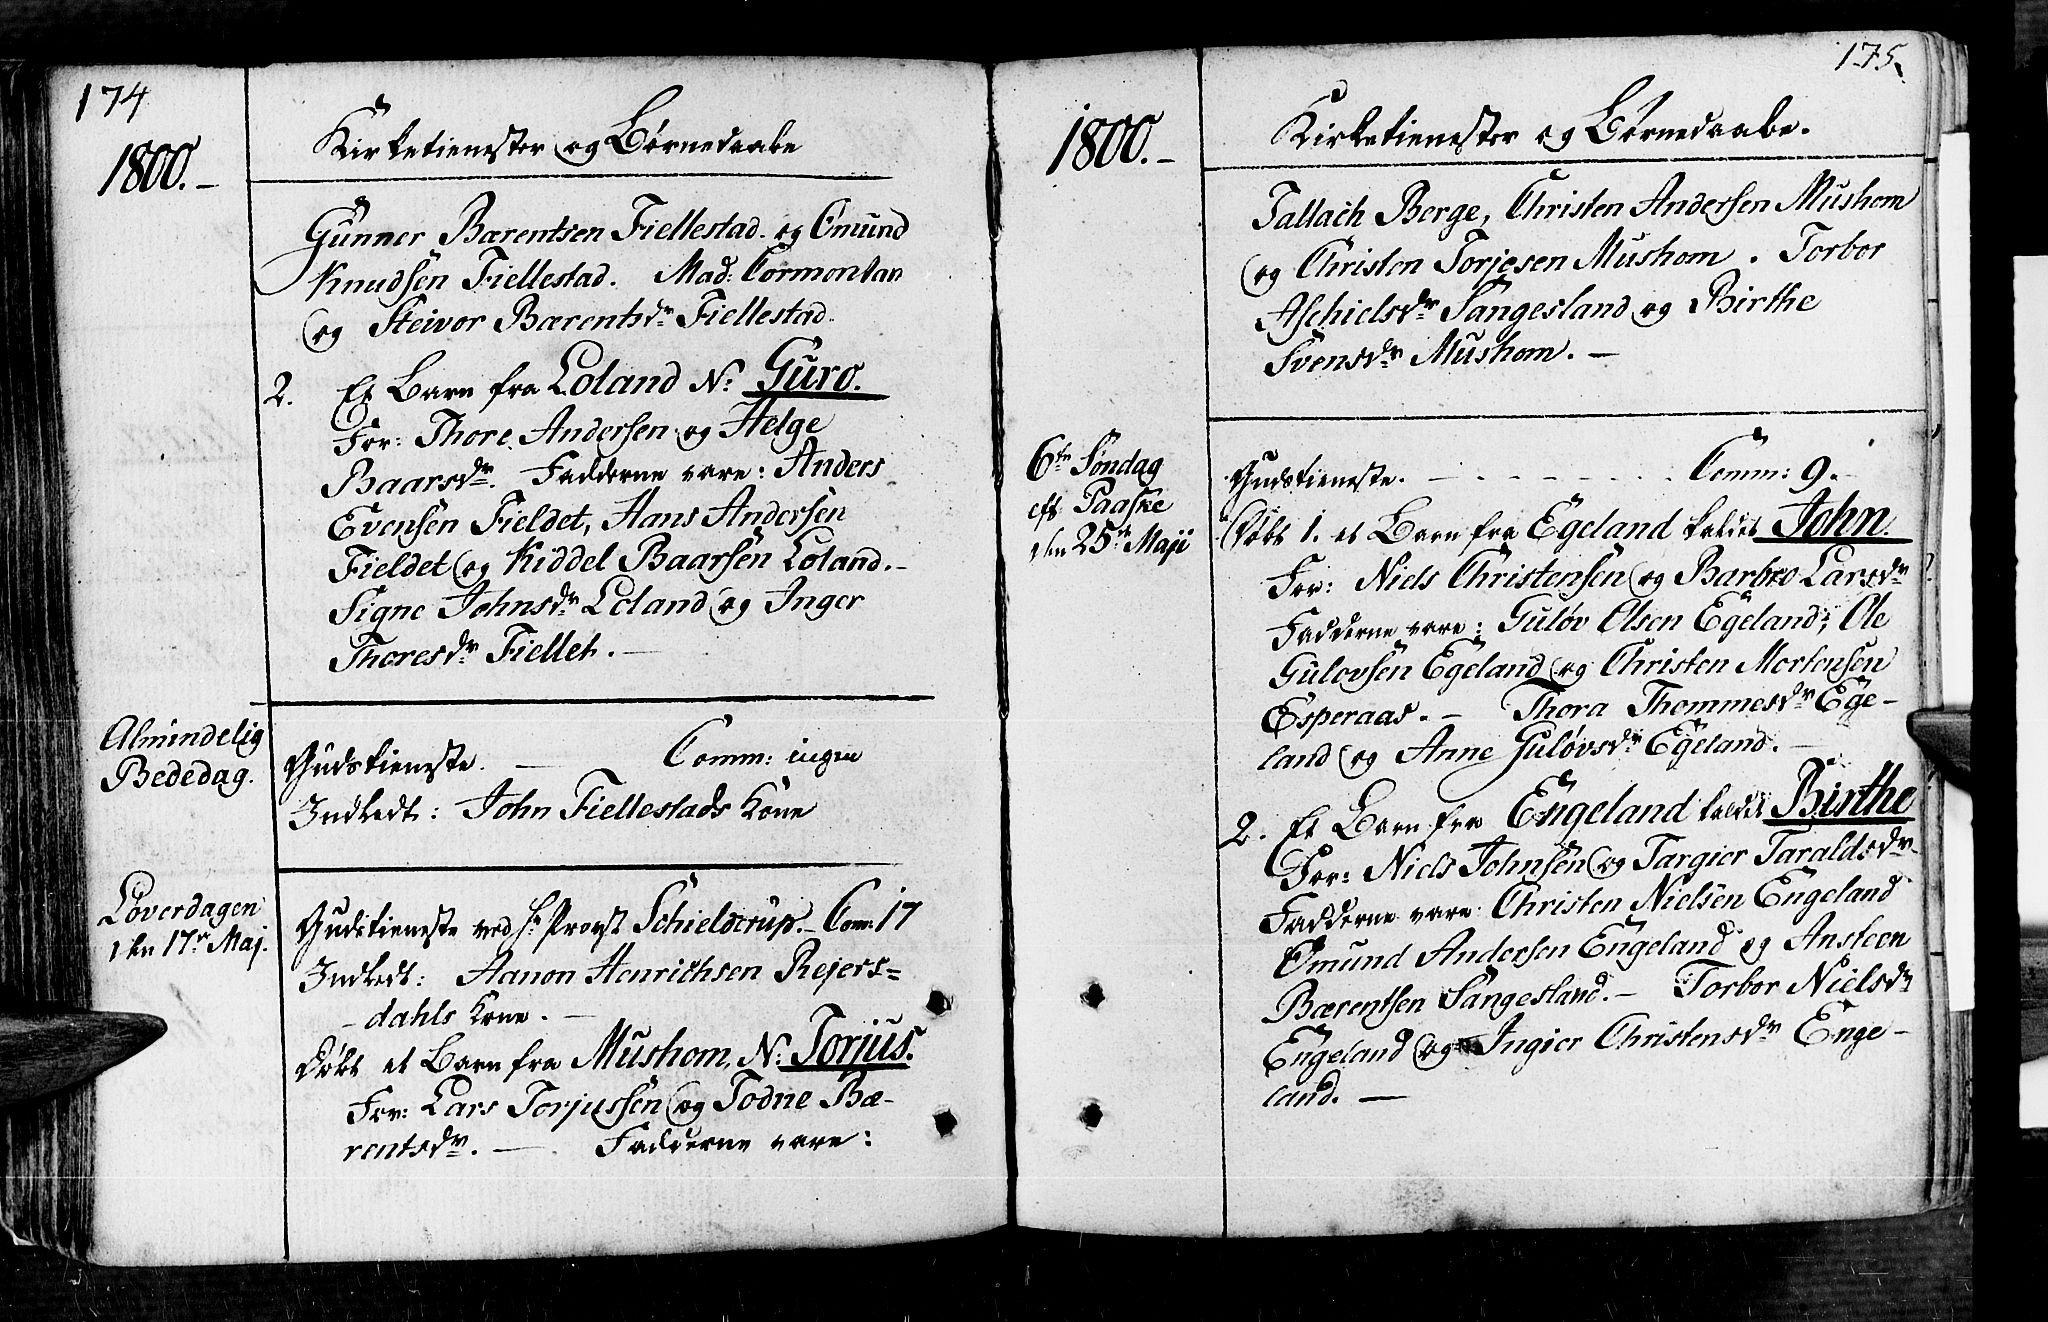 174
1800.-
Kirketienester og Børnedaabe
Gunner Bærentsen Fiellestad. og Omund
Knudsen Fiellestad. Mad: Cormontan
og Steivor Bærentsdr Fiellestad.
2. Et Barn fra Loland N: Guro.
For: Thore Andersen og Helge
Baarsdr. Fadderne vare: Anders
Evensen Fieldet, Hans Andersen
Fieldet og Kiddel Baarsen Loland.-
Signe Johnsdr Loland og Inger
Thoresdr Fiellet.-
Almindelig
Bededag.
Gudstieneste. - Comm: ingen
Indledt: John Fiellestads Kone
Løverdagen
den 17de Maj.
Gudstieneste ved Hr Provst Schielderup.- Com: 17
Indledt: Aanon Henrichsen Rejers=
-dahls Kone.-
Døbt et Barn fra Mushom, N: Torjus.
For: Lars Torjussen og Todne Bæ-
rentsdr. - . Fadderne vare:
175
1800.-
Kirketienester og Børnedaabe.
Tallach Berge, Christen Andersen Mushom
og Christen Torjesen Mushom. Torbor
Aschielsdr Sangesland og Birthe
Svensdr Mushom.-
6te Søndag
eft Paaske
den 25de Maji
Gudstieneste. - - - - - - - - Comm: 9.
Døbt 1. et Barn fra Egeland kaldet John.
For: Niels Christensen og Barbro Larsdr
Fadderne vare: Guløv Olsen Egeland, Ole
Guløvsen Egeland og Christen Mortensen
Esperaas.- Thora Thommesdr Ege-
land og Anne Guløvsdr Egeland.-
2. Et Barn fra Engeland kaldet Birthe
For: Niels Johnsen og Targier Taraldsdr.
Fadderne vare: Christen Nielsen Engeland
Omund Andersen Engeland og Ansteen
Bærentsen Sangesland.- Torbor Nielsdr
Engeland og Ingier Christensdr Enge-
land.-